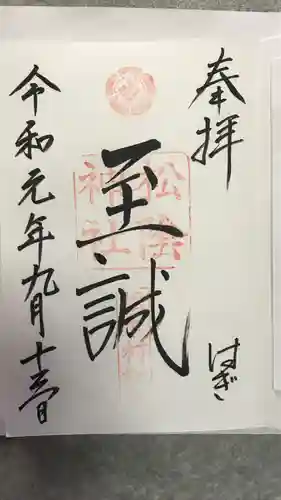 奉拝
はぎ
至誠
松陰
神社
令和元年九月十三日